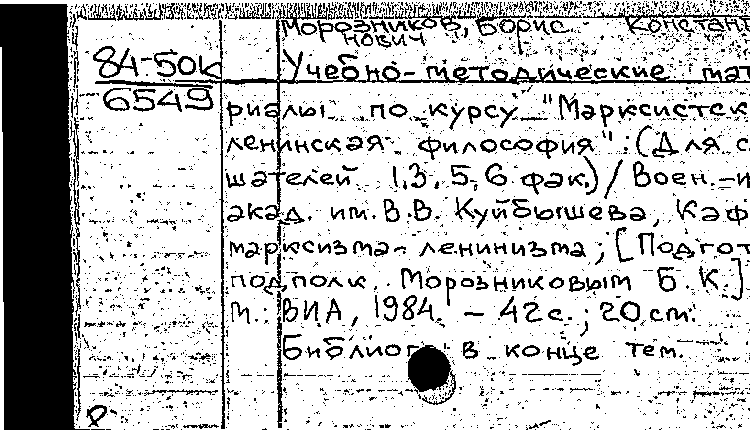 Морозников, Борис Констант
нович
84-50к Учебно-методические мат
6549 риалы по курсу "Марксистск
ленинская философия": (Для с
шателей 1,3,5,6 фак.) / Воен.-и
акад. им. В.В. Куйбышева, Каф
марксизма-ленинизма; [Подгот
подполк. Морозниковым Б.К.]
М.: ВИА, 1984. - 42с.; 20 см.
Библиогр в конце тем.
р